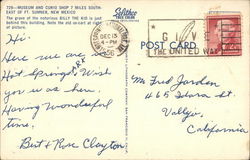 728—MUSEUM AND CURIO SHOP 7 MILES SOUTH-
EAST OF FT. SUMNER, NEW MEXICO
The grave of the notorious BILLY THE KID is just
behind this building. Note the old ox-cart at right
of picture.
DEC 13
4-PM
GIVE
THE UNITED WAY
POST CARD
Hi.
Here we are
Hot Springs ARK
Wish
you us here.
Having Wonderful
time.
Bert & Rose Clayton
Mr Fred Jordan
465 Idora St.
Vallejo
California